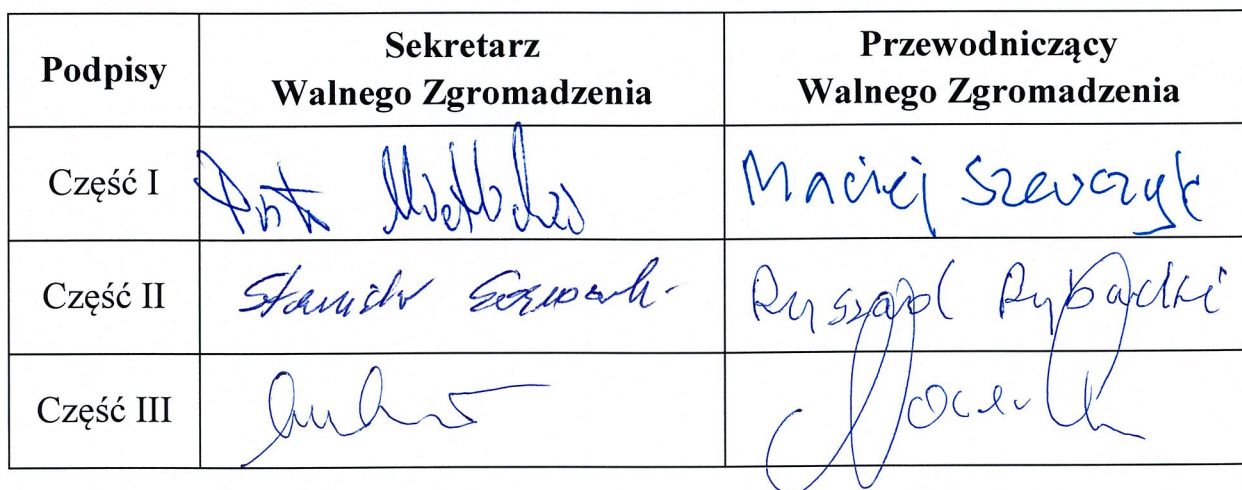 Podpisy
Sekretarz
Walnego Zgromadzenia
Przewodniczący
Walnego Zgromadzenia
Część I
Maciej Szewczyk
Część II
Stanisław
Ryszard Rybacki
Część III